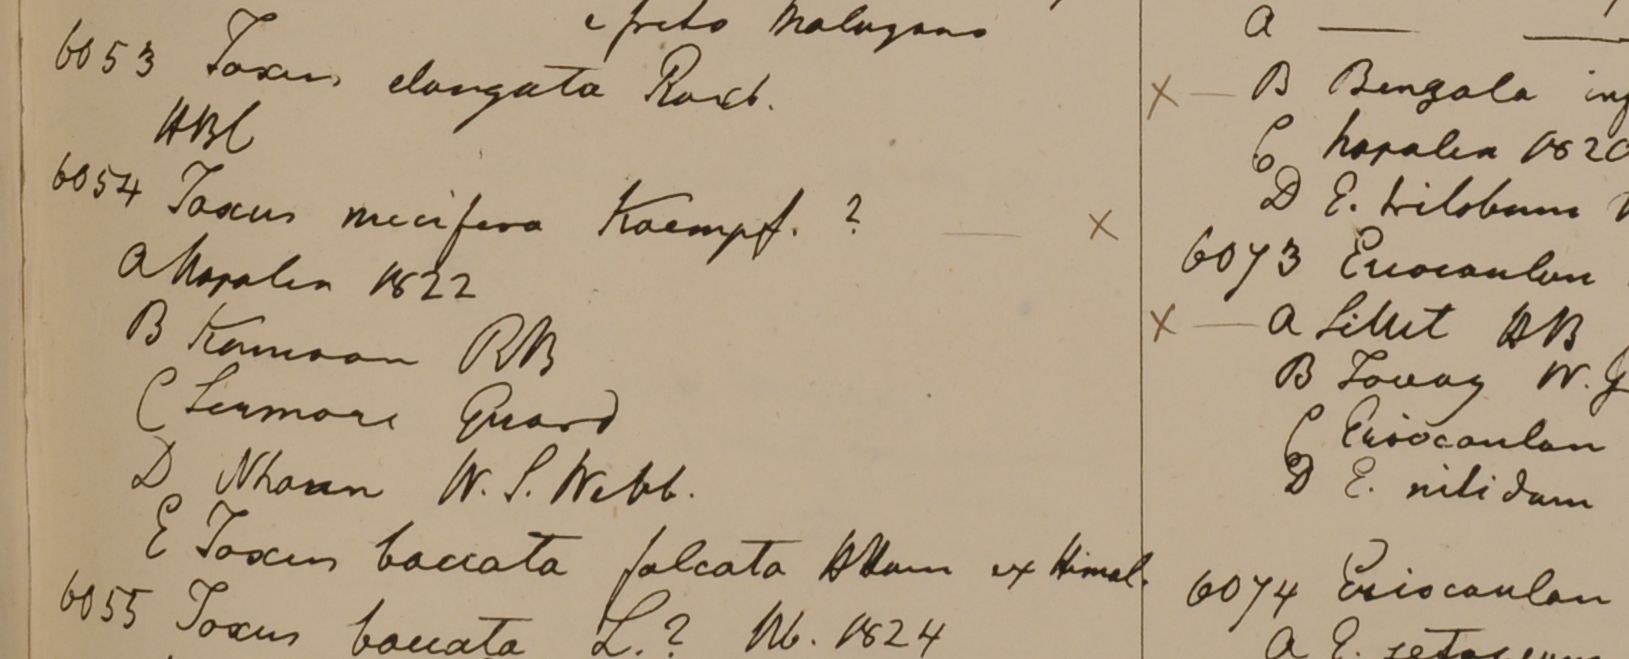 e freto Malayano
6053 Taxus elongata Roxb.
HBC
6054 Taxus nucifera Kaempf. ? — ×
A Napalia 1822
B Kamaon RB
C Sirmore Guard
D W. S. Webb.
E Taxus baccata falcata HHam ex Himal.
6055 Taxus baccata L.? Nb. 1824
A — —
× — B Bengala
C Napalia 1820
D E. trilobum
6073 Eriocaulon
× — A Sillet HB
B Tavoy W. G
C Eriocaulon
D E. nitidum
6074 Eriocaulon
A E. setaceum